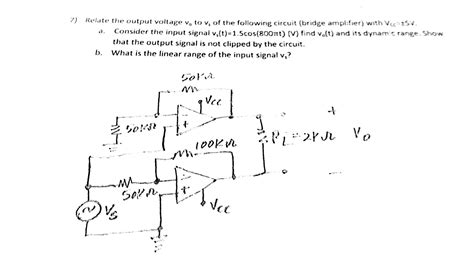 7) Relate the output voltage vₒ to vₛ of the following circuit (bridge amplifier) with Vcc=±5V.
a. Consider the input signal vₛ(t)=1.5cos(800πt) (V) find vₒ(t) and its dynamic range. Show
that the output signal is not clipped by the circuit.
b. What is the linear range of the input signal vₛ?
50kΩ
Vcc
+
50kΩ
-
+
100kΩ
RL=2kΩ
Vo
50kΩ
-
+
Vs
Vcc
-